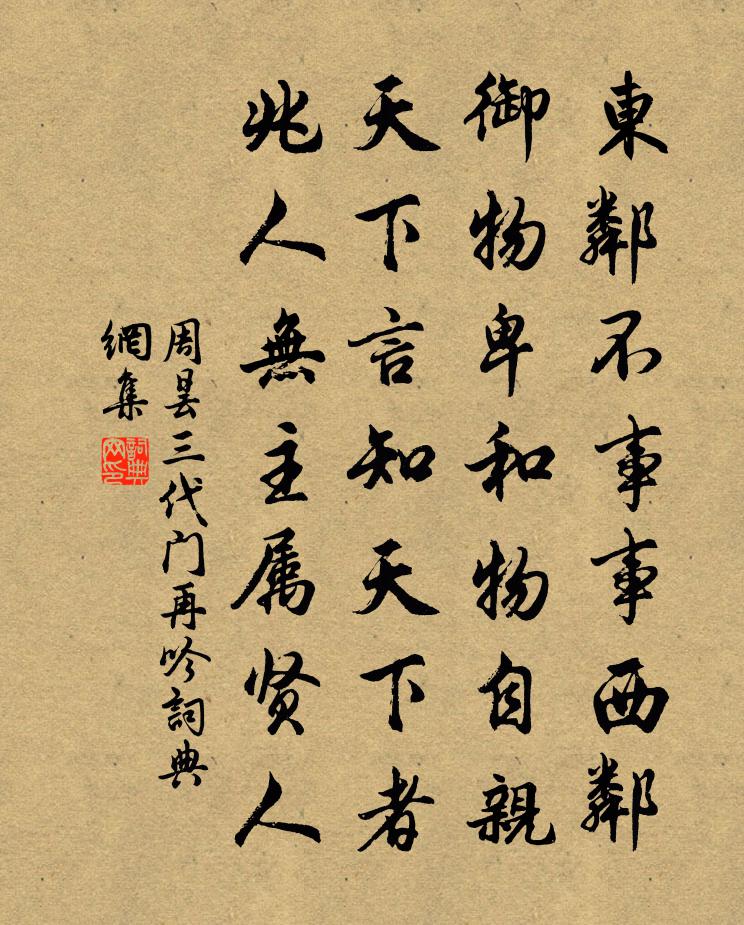 東鄰不事事西鄰
御物卑和物自親
天下言知天下者
兆人無主属贤人
周曇三代门再吟詞典
網集
詞典
网印